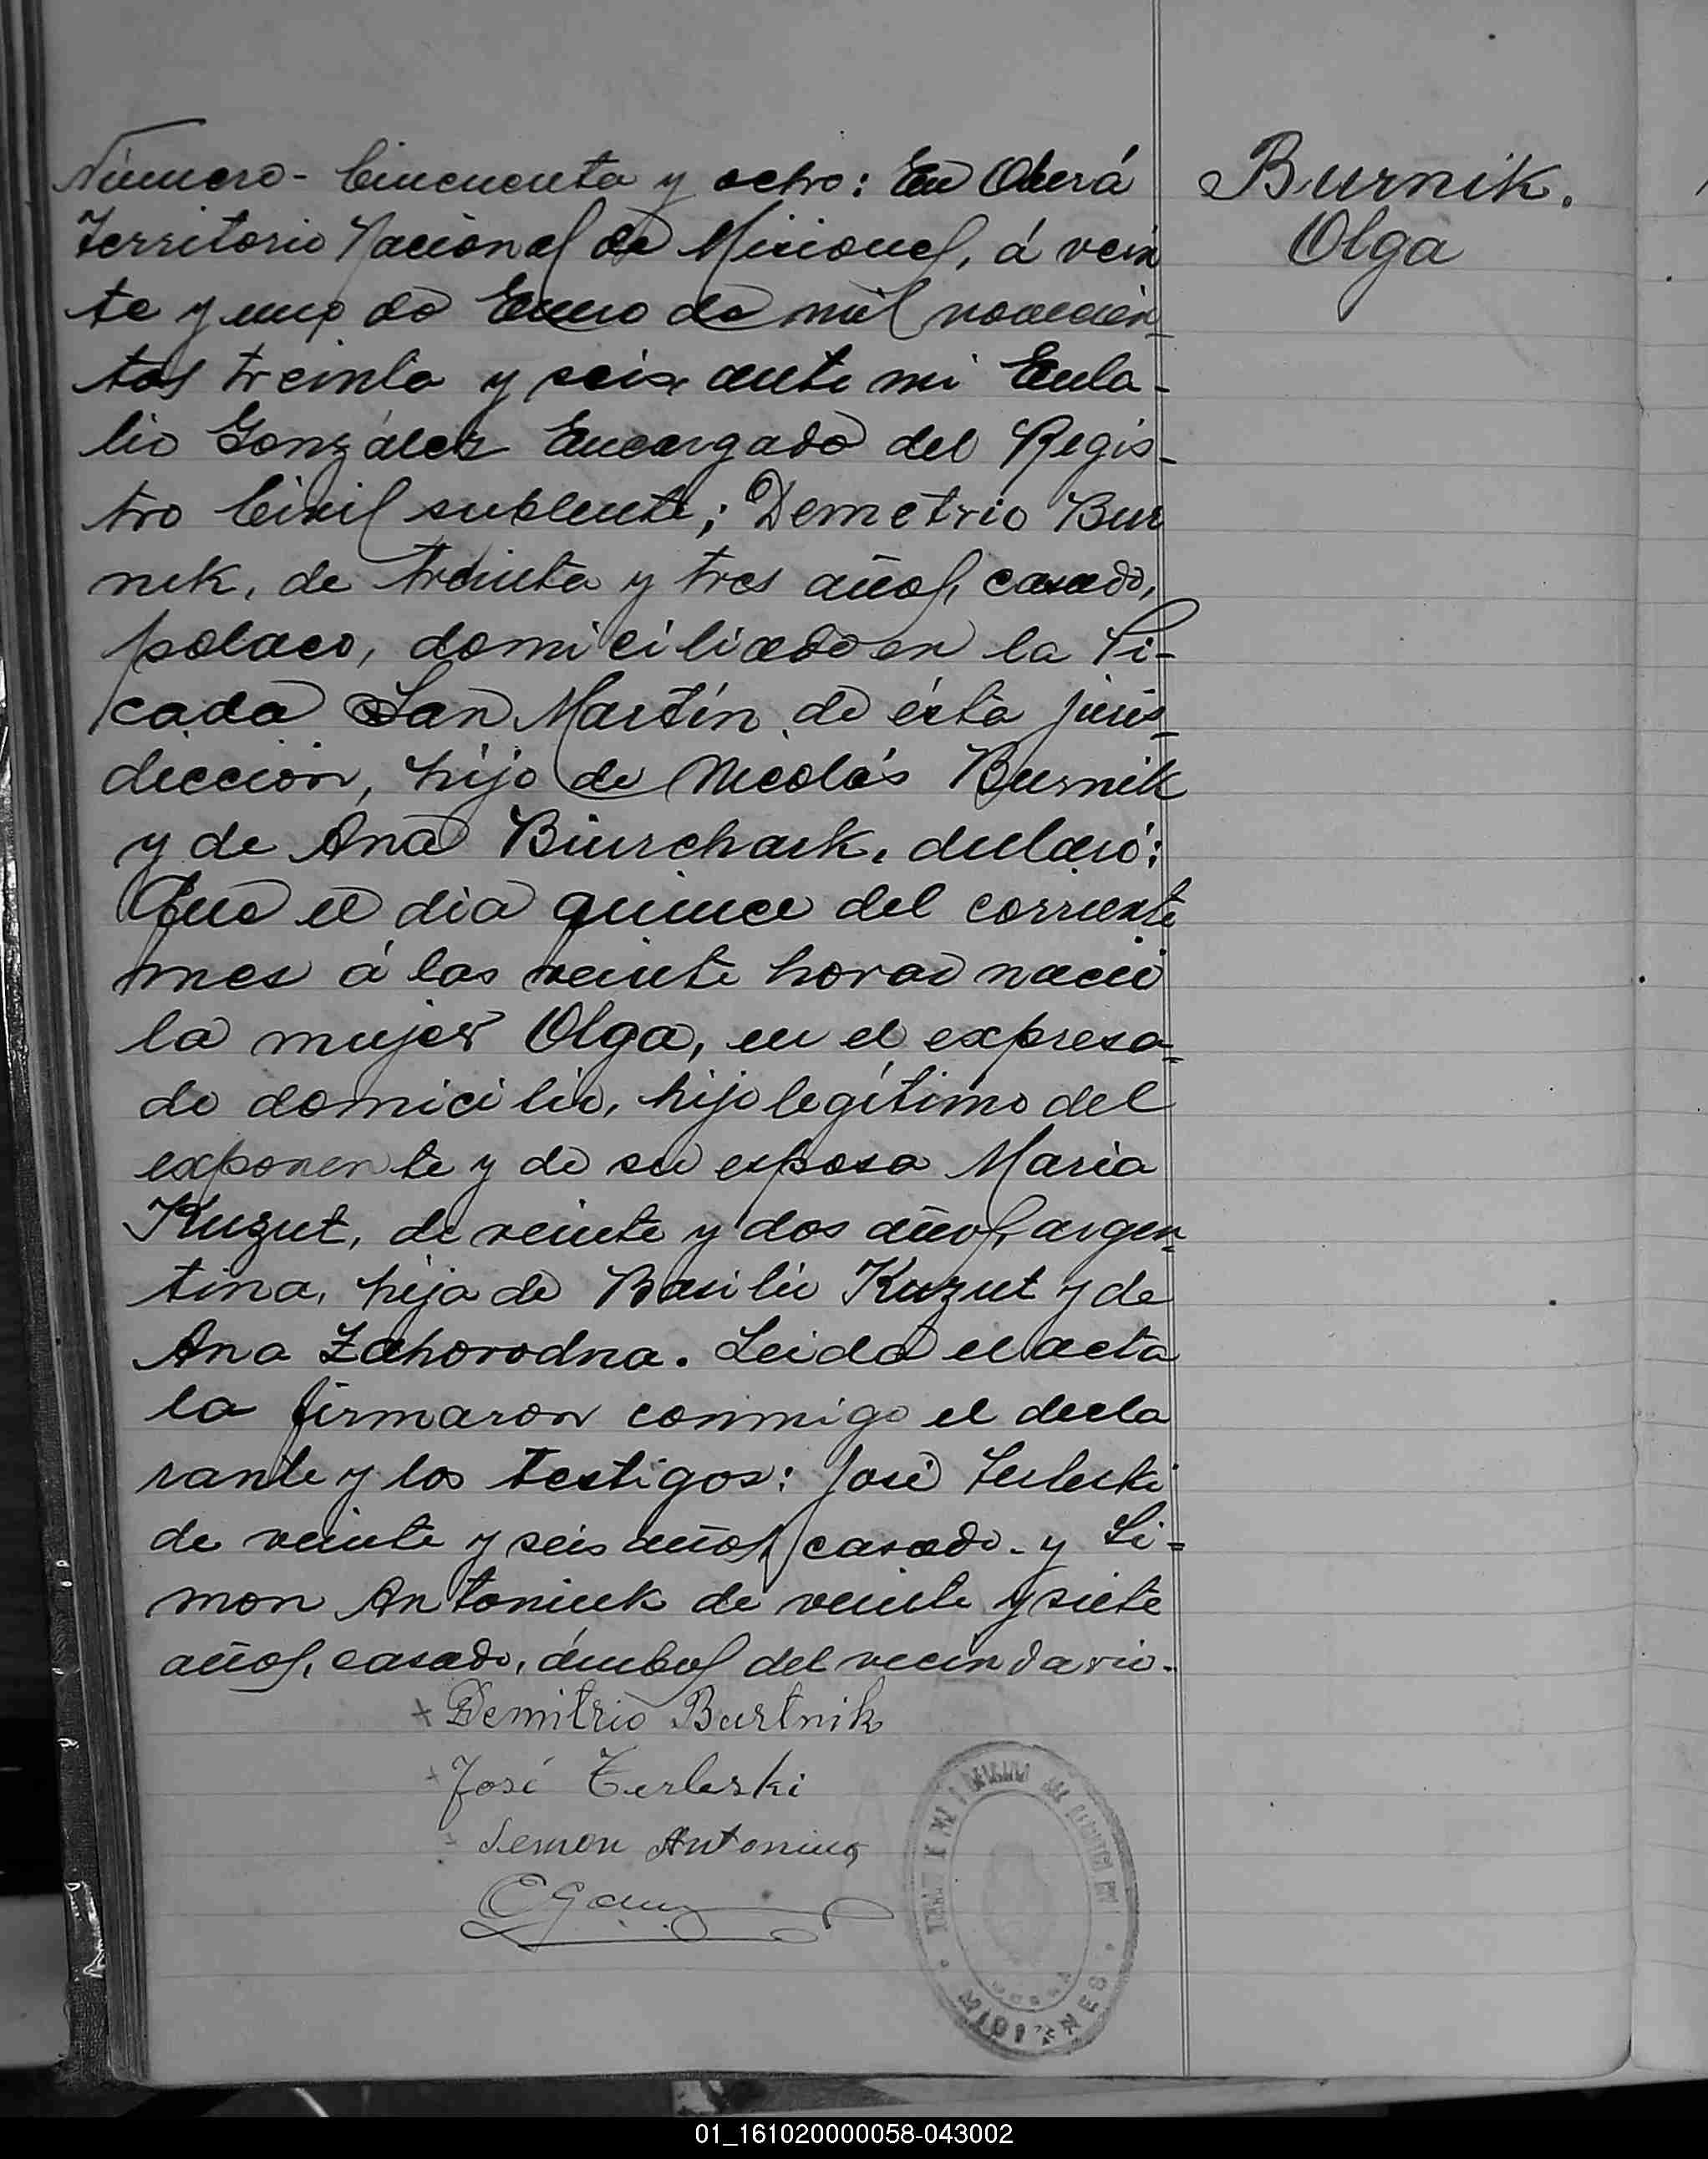 Número - Cincuenta y ocho: En Oberá
Burnik.
Olga
Territorio Nacional de Misiones, á vein
te y uno de Enero de mil novecien
tos treinta y seis, ante mi Eula-
lio González Encargado del Regis-
tro Civil suplente; Demetrio Bur
nik, de treinta y tres años, casado,
polaco, domiciliado en la Pi-
cada San Martín de ésta juris-
dicción, hijo de Nicolás Burnik
y de Ana Biurchack, declaró:
Que el dia quince del corriente
mes á las veinte horas nació
la mujer Olga, en el expresa-
do domicilio, hijo legítimo del
exponente y de su esposa Maria
Kuzut, de veinte y dos años, argen-
tina, hija de Basilio Kuzut y de
Ana Zahorodna. Leida el acta
la firmaron conmigo el decla
rante y los testigos: José Terleski
de veinte y seis años, casado - y Si-
mon Antoniuk de veinte y siete
años, casado, ámbos del vecindario.
+ Demitrio Burtnik
+ José Terleski
Semon Antoniuq
MISIONES
01_161020000058-043002